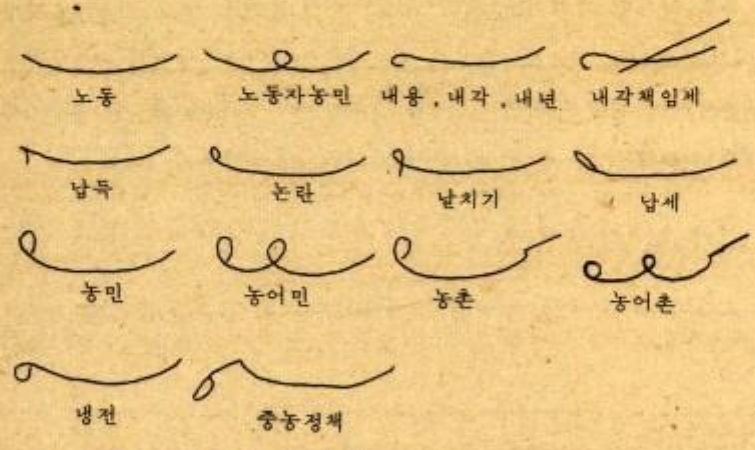 노동 노동자농민 내용, 내각, 내년 내각책임제
납득 논란 날치기 납세
농민 농어민 농촌 농어촌
냉전 중농정책